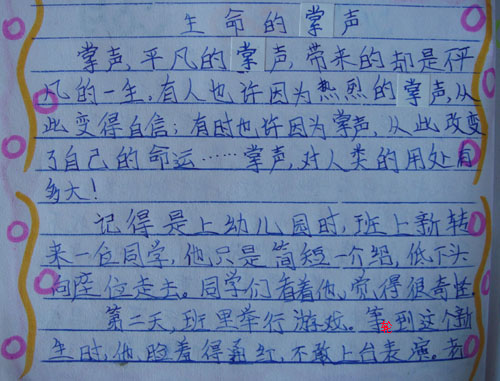 生命的掌声
掌声,平凡的掌声,带来的却是伻
凡的一生,有人也许因为热烈的掌声,从
此变得自信;有时也许因为掌声,从此改变
了自己的命运……掌声,对人类的用处有
多大!
记得是上幼儿园时,班上新转
来一位同学,他只是简短一介绍,低下头
向座位走去。同学们看着他,觉得很奇怪。
第二天,班里举行游戏。轮到这个新
生时,他脸羞得通红,不敢上台表演。老